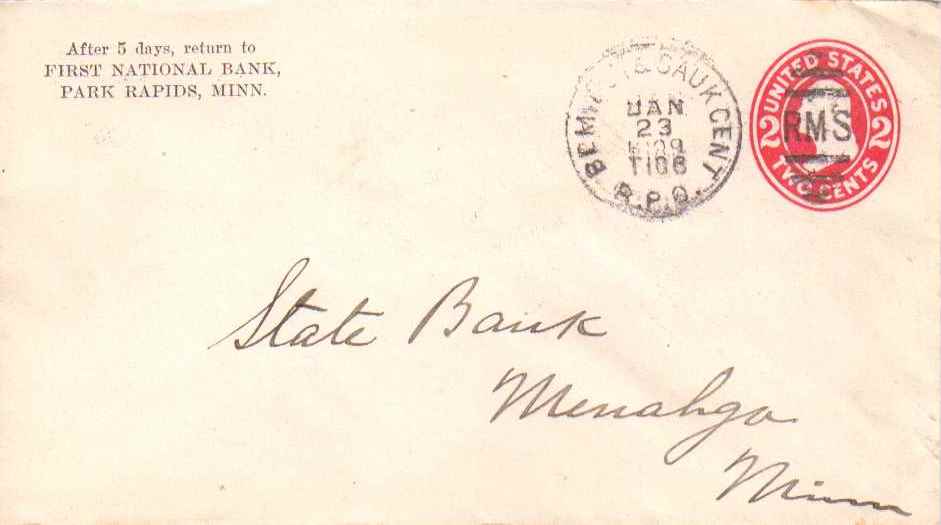 After 5 days, return to
FIRST NATIONAL BANK,
PARK RAPIDS, MINN.
& SAUK CENT
JAN
23
R.P.O.
UNITED STATES
2 2
RMS
TWO CENTS
State Bank
Menahga
Minn